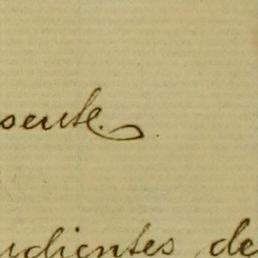 sente.
udientes de